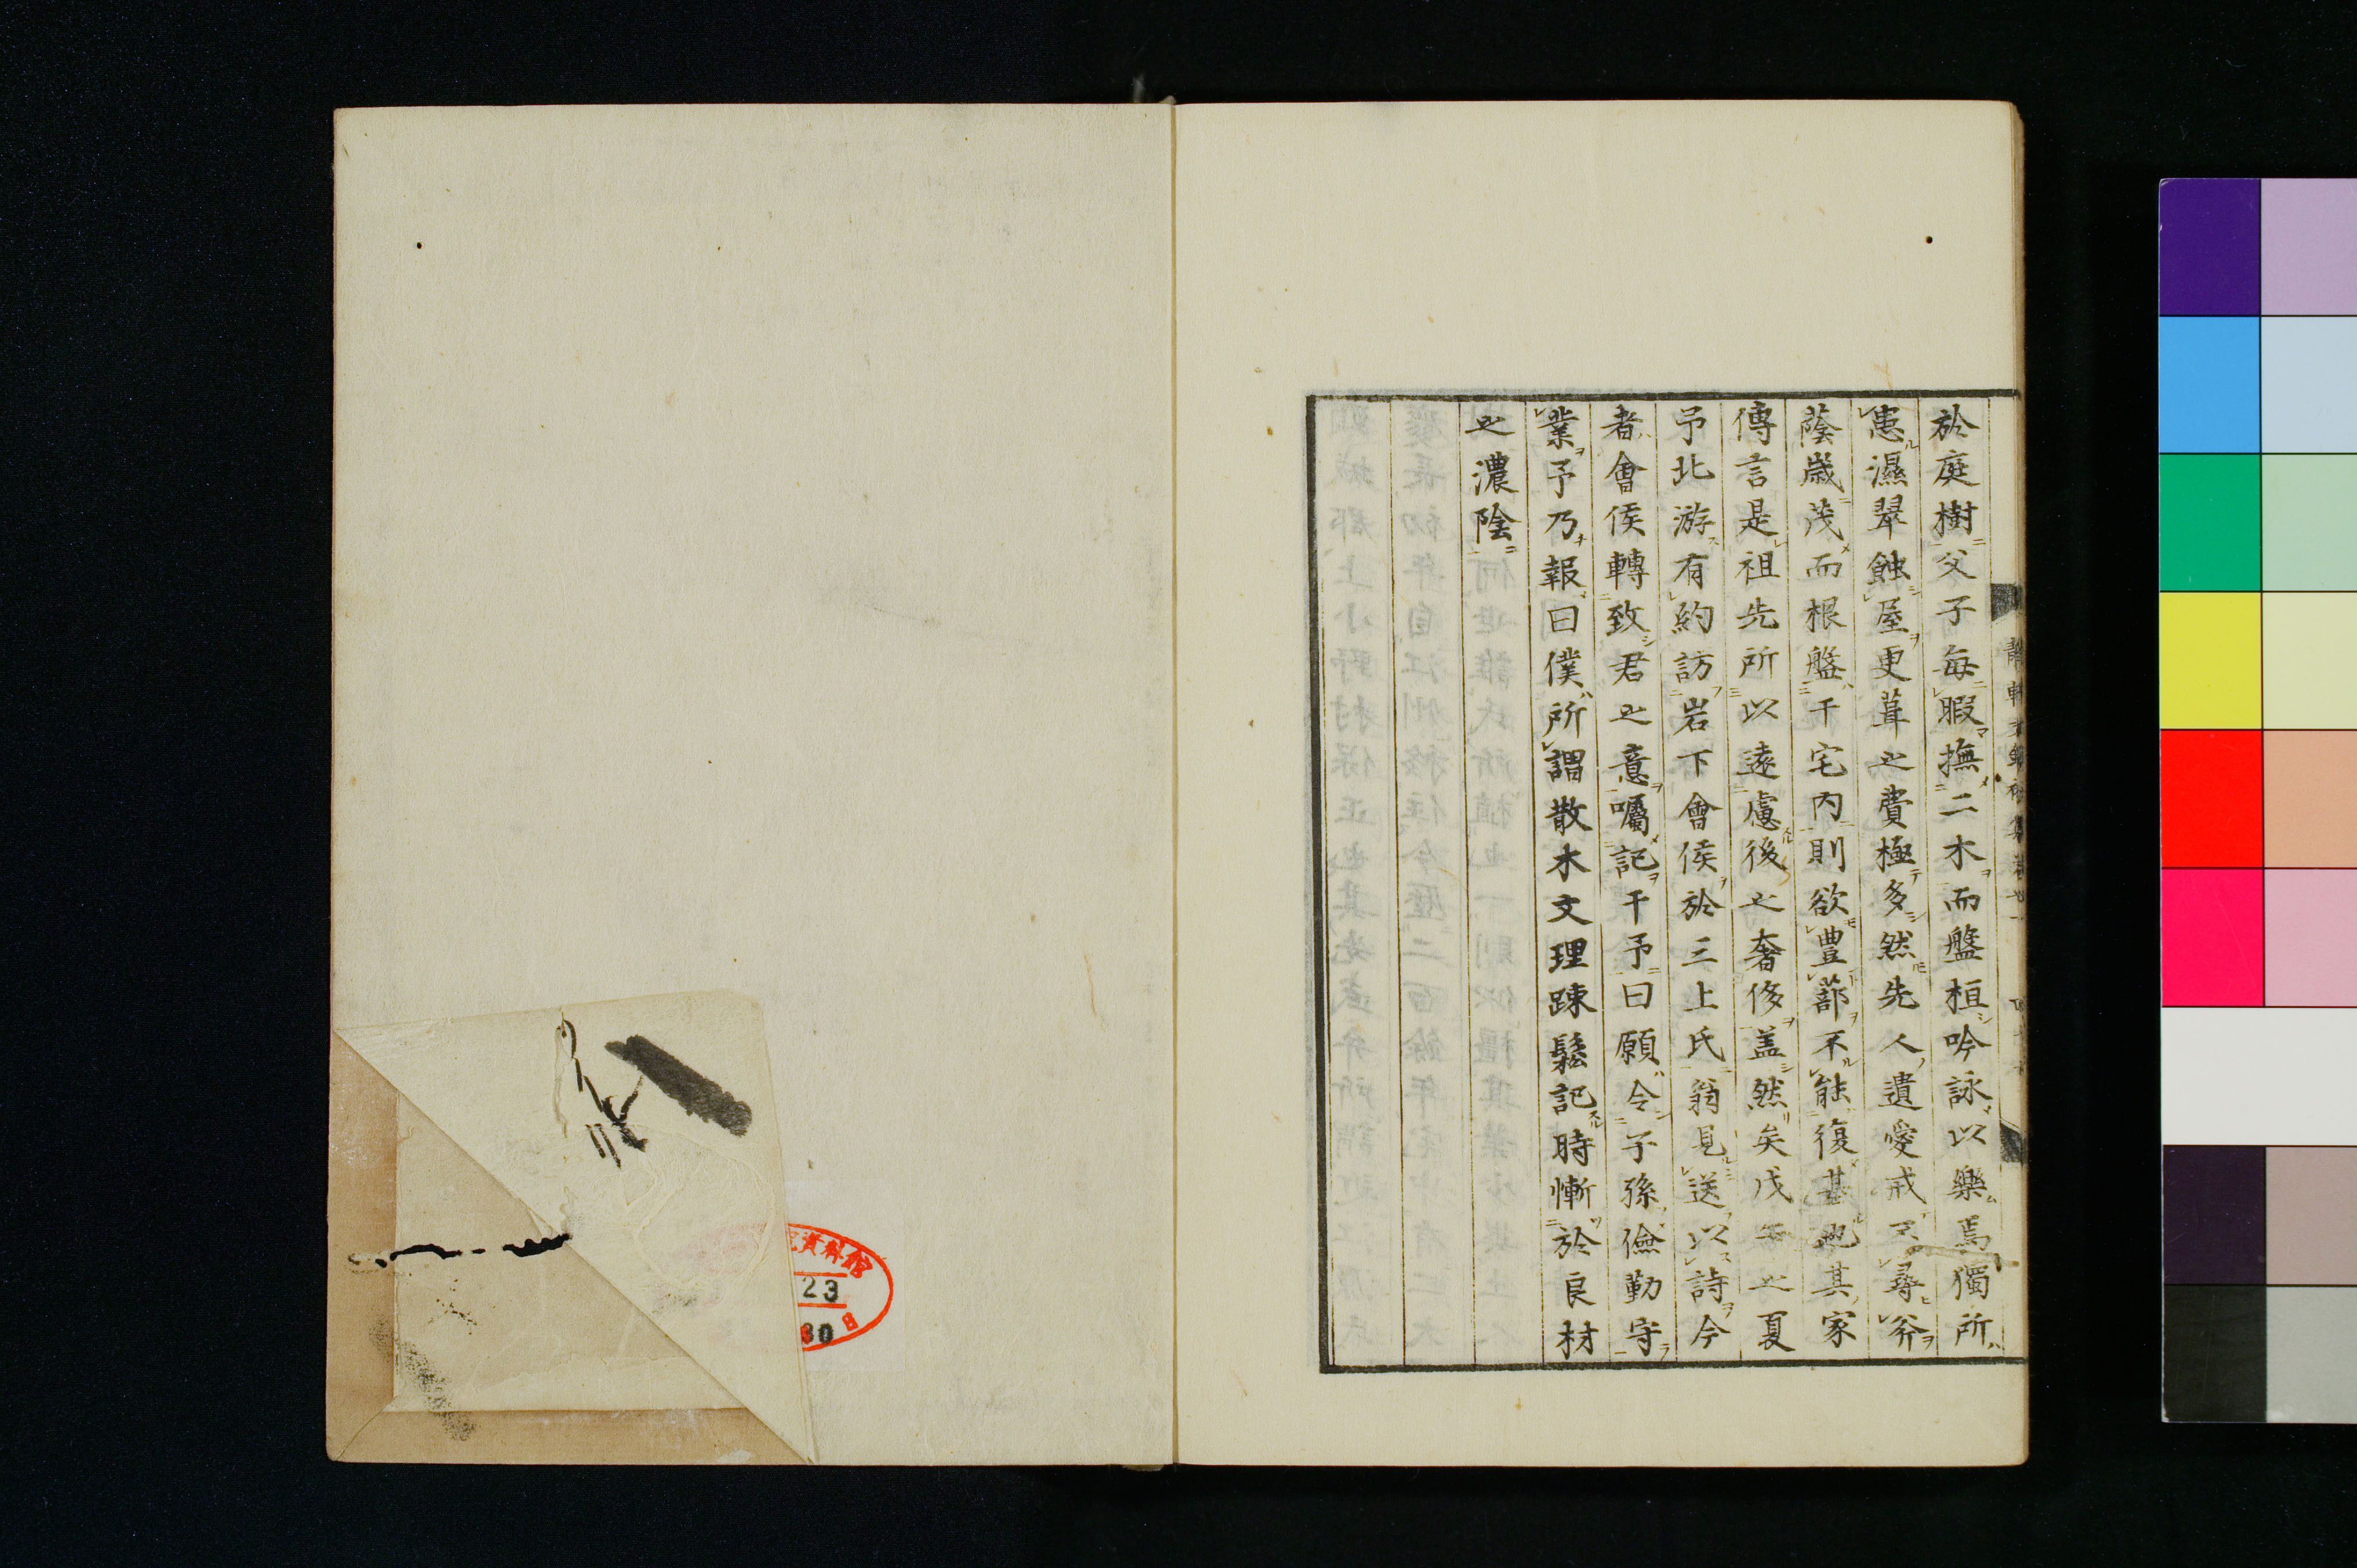 於庭樹父子每暇撫二木而盤桓吟詠以樂焉獨所
患濕翠蝕屋更葺之費極多然先人遺愛戒不尋斧
蔭歳茂而根盤于宅内則欲豊蔀不能復其家
傳言是祖先所以遠慮後之奢侈盖然矣戊之夏
予北游有約訪岩下會侯於三上氏翁見送以詩今
者會侯轉致君之意囑記于予曰願令子孫儉勤守
業予乃報曰僕所謂散木文理踈鬆記時慚於良材
之濃陰
資料館
23
30
日